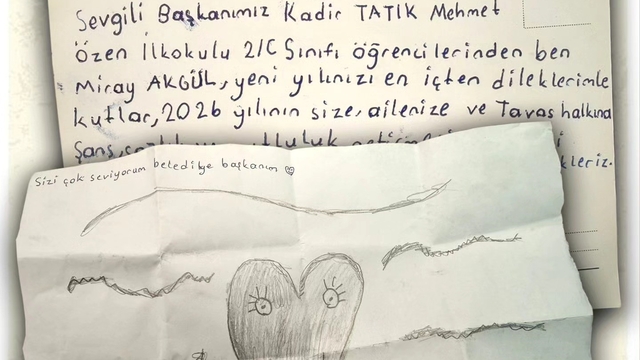 Sevgili Başkanımız Kadir TATIK Mehmet
Özen İlkokulu 2/C Sınıfı öğrencilerinden ben
Miray AKGÜL, yeni yılınızı en içten dileklerimle
kutlar, 2026 yılının size, ailenize ve Tavas halkına
Şans,
kleriz.
Sizi çok seviyorum belediye başkanım